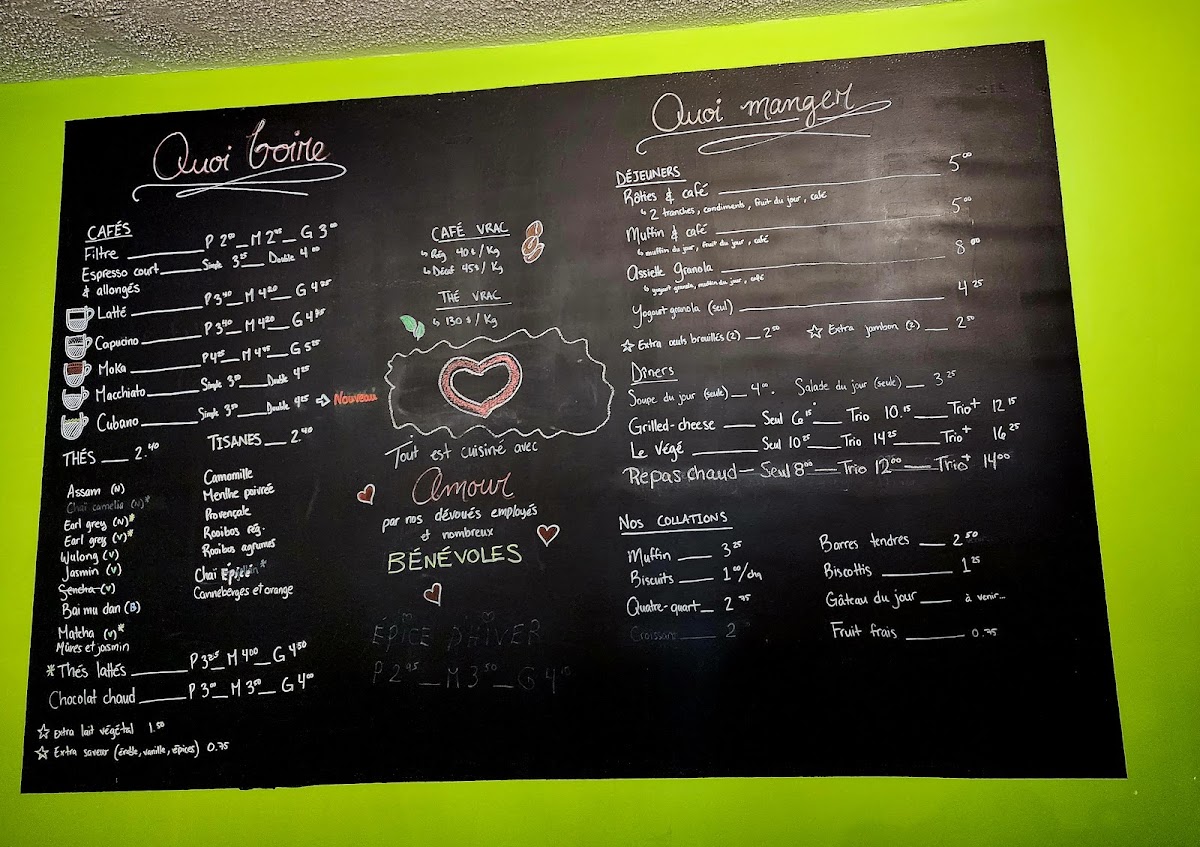 Quoi boire
CAFÉS
Filtre P 2⁰⁰ M 2⁴⁵ G 3⁰⁰
Espresso court Simple 3²⁵ Double 4⁰⁰
& allongés
Latté P 3⁴⁰ M 4²⁰ G 4⁹⁵
Capucino P 3⁴⁰ M 4²⁰ G 4⁹⁵
Moka P 4²⁵ M 4⁹⁵ G 5²⁵
Macchiato Simple 3⁵⁰ Double 4²⁵
Cubano Simple 3⁵⁰ Double 4²⁵ ⇨ Nouveau
THÉS 2.40
Assam (N)
Chaï camelia (N)*
Earl grey (N)*
Earl grey (V)*
Wulong (V)
Jasmin (V)
Sencha (V)
Bai mu dan (B)
Matcha (V)*
Mûres et jasmin
TISANES 2.⁴⁰
Camomille
Menthe poivrée
Provençale
Rooibos rég.
Rooibos agrumes
Chaï Épice*
Canneberges et orange
*Thés lattés P 3²⁵ M 4⁰⁰ G 4⁵⁰
Chocolat chaud P 3⁰⁰ M 3⁵⁰ G 4⁰⁰
☆ Extra lait végétal 1.50
☆ Extra saveur (érable, vanille, épices) 0.75
CAFÉ VRAC
↳ Rég 40$/Kg
↳ Décaf 45$/Kg
THÉ VRAC
↳ 130$/Kg
Tout est cuisiné avec
Amour
par nos dévoués employés
et nombreux
BÉNÉVOLES
ÉPICE D'HIVER
P 2⁹⁵ M 3⁵⁰ G 4
Quoi manger
DÉJEUNERS
Rôties & café 5⁰⁰
↳ 2 tranches, condiments, fruit du jour, café
Muffin & café 5⁰⁰
↳ muffin du jour, fruit du jour, café
Assiette Granola 8⁰⁰
↳ yogourt granola, muffin du jour, café
Yogourt granola (seul) 4²⁵
☆ Extra œufs brouillés (2) 2⁵⁰ ☆ Extra jambon (2) 2⁵⁰
Dîners
Soupe du jour (seule) 4⁰⁰ Salade du jour (seule) 3²⁵
Grilled-cheese Seul 6¹⁵ Trio 10.¹⁵ Trio+ 12¹⁵
Le Végé Seul 10²⁵ Trio 14²⁵ Trio+ 16²⁵
Repas chaud Seul 8⁰⁰ Trio 12⁰⁰ Trio+ 14⁰⁰
NOS COLLATIONS
Muffin 3²⁵
Biscuits 1⁰⁰/ch
Quatre-quart 2⁷⁵
Croissant 2
Barres tendres 2⁵⁰
Biscottis 1²⁵
Gâteau du jour à venir...
Fruit frais 0.75